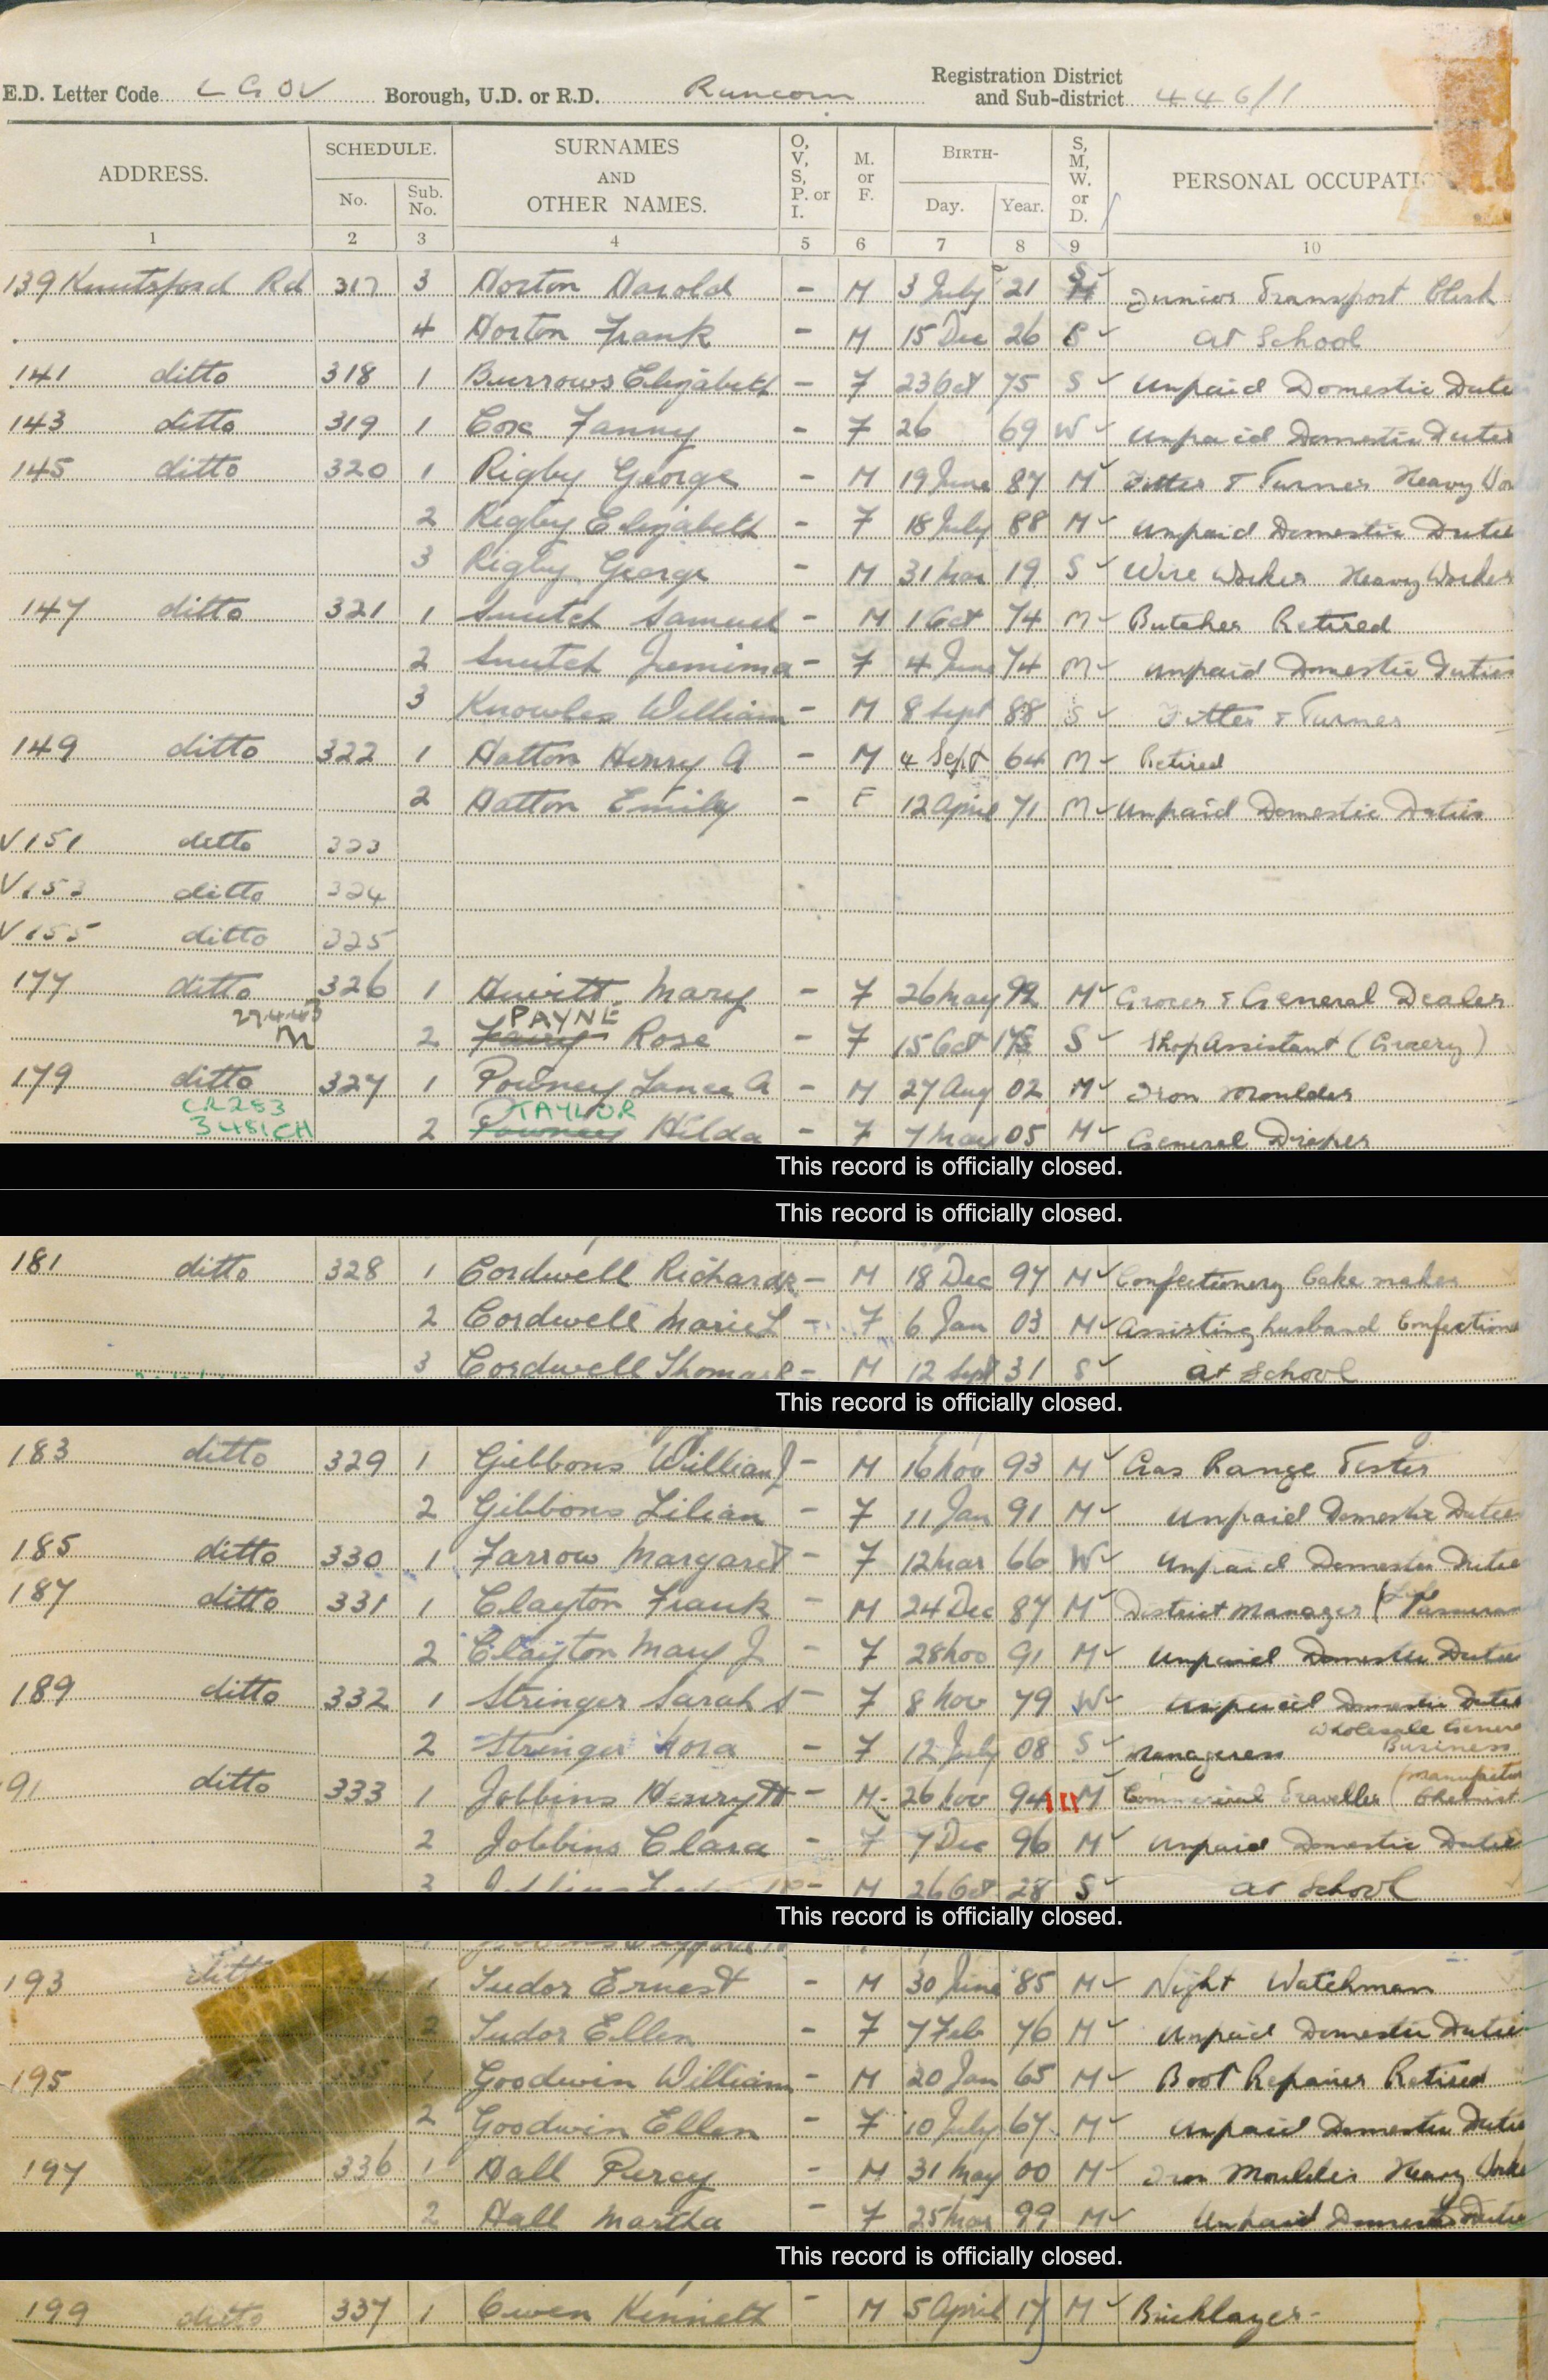 E.D. Letter Code LGOV Borough, U.D. or R.D. Runcorn Registration District and Sub-district 446/1
ADDRESS. SCHEDULE. No. Sub. No. SURNAMES AND OTHER NAMES. O, V, S, P. or I. M. or F. BIRTH- Day. Year. S, M, W. or D. PERSONAL OCCUPATI
1 2 3 4 5 6 7 8 9 10
139 Knutsford Rd 317 3 Horton Harold - M 3 July 21 S Junior Transport Clerk
4 Horton Frank - M 15 Dec 26 S At School
141 ditto 318 1 Burrows Elizabeth - F 23 Oct 75 S Unpaid Domestic Dutie
143 ditto 319 1 Cox Fanny - F 26 69 W Unpaid Domestic Duties
145 ditto 320 1 Rigby George - M 19 June 87 M Fitter & Turner Heavy Wor
2 Rigby Elizabeth - F 18 July 88 M Unpaid Domestic Dutie
3 Rigby George - M 31 Mar 19 S Wire Worker Heavy Worker
147 ditto 321 1 Samuel - M 1 Oct 74 M Butcher Retired
2 Jemima - F 4 June 74 M Unpaid Domestic Duties
3 Knowles William - M 8 Sept 88 S Fitter & Turner
149 ditto 322 1 Hatton Henry A - M 4 Sept 64 M Retired
2 Hatton Emily - F 12 April 71 M Unpaid Domestic Duties
V 151 ditto 323
V 153 ditto 324
V 155 ditto 325
177 ditto 326 1 Hewitt Mary - F 26 May 92 M Grocer & General Dealer
PAYNE
2 Rose - F 15 Oct S Shop Assistant (Grocery)
179 ditto 327 1 Powney Lance A - M 27 Aug 02 M Iron Moulder
CR283 TAYLOR
2 Powney Hilda - F 7 May 05 M General Draper
This record is officially closed.
This record is officially closed.
181 ditto 328 1 Cordwell Richard - M 18 Dec 97 M Confectionery Cake maker
2 Cordwell Marie L - F 6 Jan 03 M Assisting husband Confection
3 Cordwell Thomas - M 12 Sept 31 S At School
This record is officially closed.
183 ditto 329 1 Gibbons William J - M 16 Nov 93 M Gas Range Tester
2 Gibbons Lilian - F 11 Jan 91 M Unpaid Domestic Duties
185 ditto 330 1 Farrow Margaret - F 12 Mar 66 W Unpaid Domestic Dutie
187 ditto 331 1 Clayton Frank - M 24 Dec 87 M District Manager
2 Clayton Mary J - F 28 Nov 91 M Unpaid Domestic Dutie
189 ditto 332 1 Stringer Sarah A - F 8 Nov 79 W Unpaid Domestic Duties
2 Stringer Nora - F 12 July 08 S Manageress Wholesale Genera Business
91 ditto 333 1 Jobbins Henry - M 26 Nov 94 M Commercial Traveller (Manufactur Chemist
2 Jobbins Clara - F 7 Dec 96 M Unpaid Domestic Duties
3 - M 26 Oct 28 S At School
This record is officially closed.
193 ditto 1 Tudor Ernest - M 30 June 85 M Night Watchman
2 Tudor Ellen - F 7 Feb 76 M Unpaid Domestic Dutie
195 335 1 Goodwin William - M 20 Jan 65 M Boot Repairer Retired
2 Goodwin Ellen - F 10 July 67 M Unpaid Domestic Dutie
197 336 1 Hall Percy - M 31 May 00 M Iron Moulder Heavy Worke
2 Hall Martha - F 25 Mar 99 M Unpaid Domestic Dutie
This record is officially closed.
199 ditto 337 1 Owen Kenneth - M 5 April 17 M Bricklayer